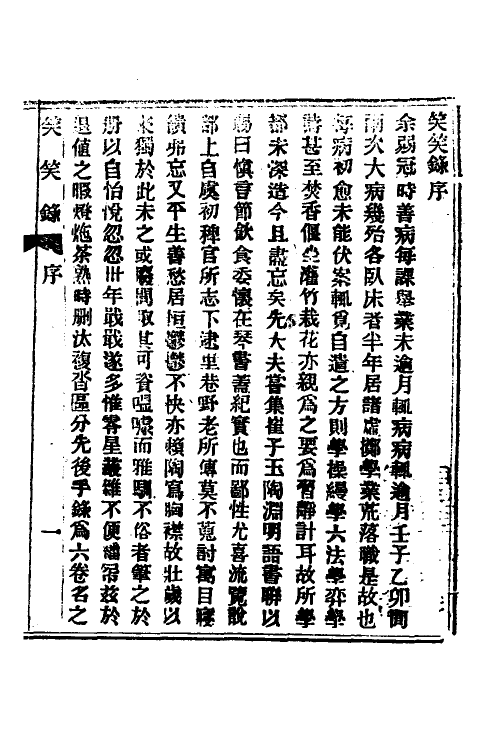 笑笑錄序
余弱冠時善病每課舉業未逾月輒病病輒逾月壬子乙卯間
兩次大病幾殆各臥床者半年居諸虛擲學業荒落職是故也
每病初愈未能伏案輒覓自遣之方則學操縵學六法學弈學
詩甚至焚香偃坐灌竹栽花亦親爲之要爲習靜計耳故所學
都未深造今且盡忘矣先大夫嘗集崔子玉陶淵明語書聯以
賜曰慎言節飲食委懷在琴書蓋紀實也而鄙性尤喜流覽說
部上自虞初稗官所志下逮里巷野老所傳莫不蒐討寓目寢
饋弗忘又平生善愁居恒鬱鬱不快亦賴陶寫胸襟故壯歲以
來獨於此未之或廢間取其可資嗢噱而雅馴不俗者筆之於
册以自怡悅忽忽卅年戢戢遂多惟零星叢雜不便繙帋茲於
退值之暇燈灺茶熟時刪汰複沓區分先後手錄爲六卷名之
笑笑錄 序 一